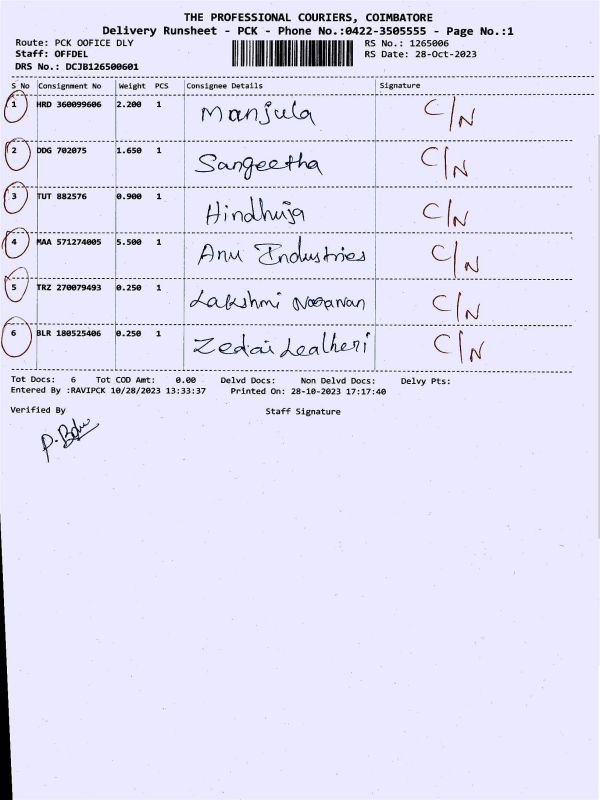 THE PROFESSIONAL COURIERS, COIMBATORE
Delivery Runsheet - PCK - Phone No.:0422-3505555 - Page No.:1
Route: PCK OOFICE DLY RS No.: 1265006
Staff: OFFDEL RS Date: 28-Oct-2023
DRS No.: DCJB126500601
S No Consignment No Weight PCS Consignee Details Signature
1 HRD 360099606 2.200 1 Manjula C/N
2 DDG 702075 1.650 1 Sangeetha C/N
3 TUT 882576 0.900 1 Hindhuja C/N
4 MAA 571274005 5.500 1 Anu Industries C/N
5 TRZ 270079493 0.250 1 Lakshmi C/N
6 BLR 180525406 0.250 1 Zedai C/N
Tot Docs: 6 Tot COD Amt: 0.00 Delvd Docs: Non Delvd Docs: Delvy Pts:
Entered By :RAVIPCK 10/28/2023 13:33:37 Printed On: 28-10-2023 17:17:40
Verified By Staff Signature